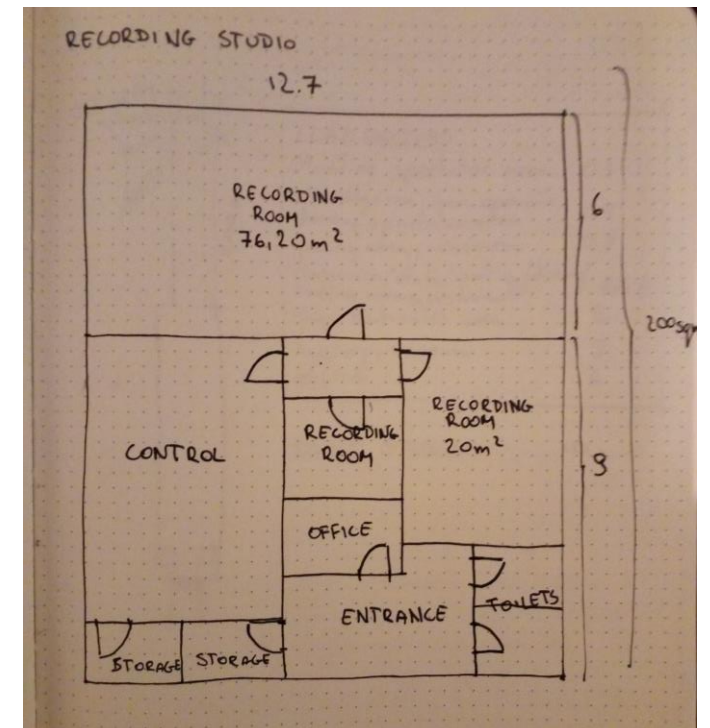 RECORDING STUDIO
12.7
RECORDING
ROOM
76,20m²
6
200sqm
CONTROL
RECORDING
ROOM
RECORDING
ROOM
20m²
9
OFFICE
ENTRANCE
TOILETS
STORAGE
STORAGE